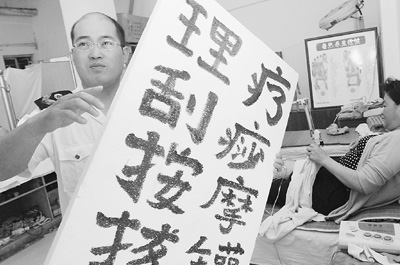 理疗
刮痧
按摩
拔罐